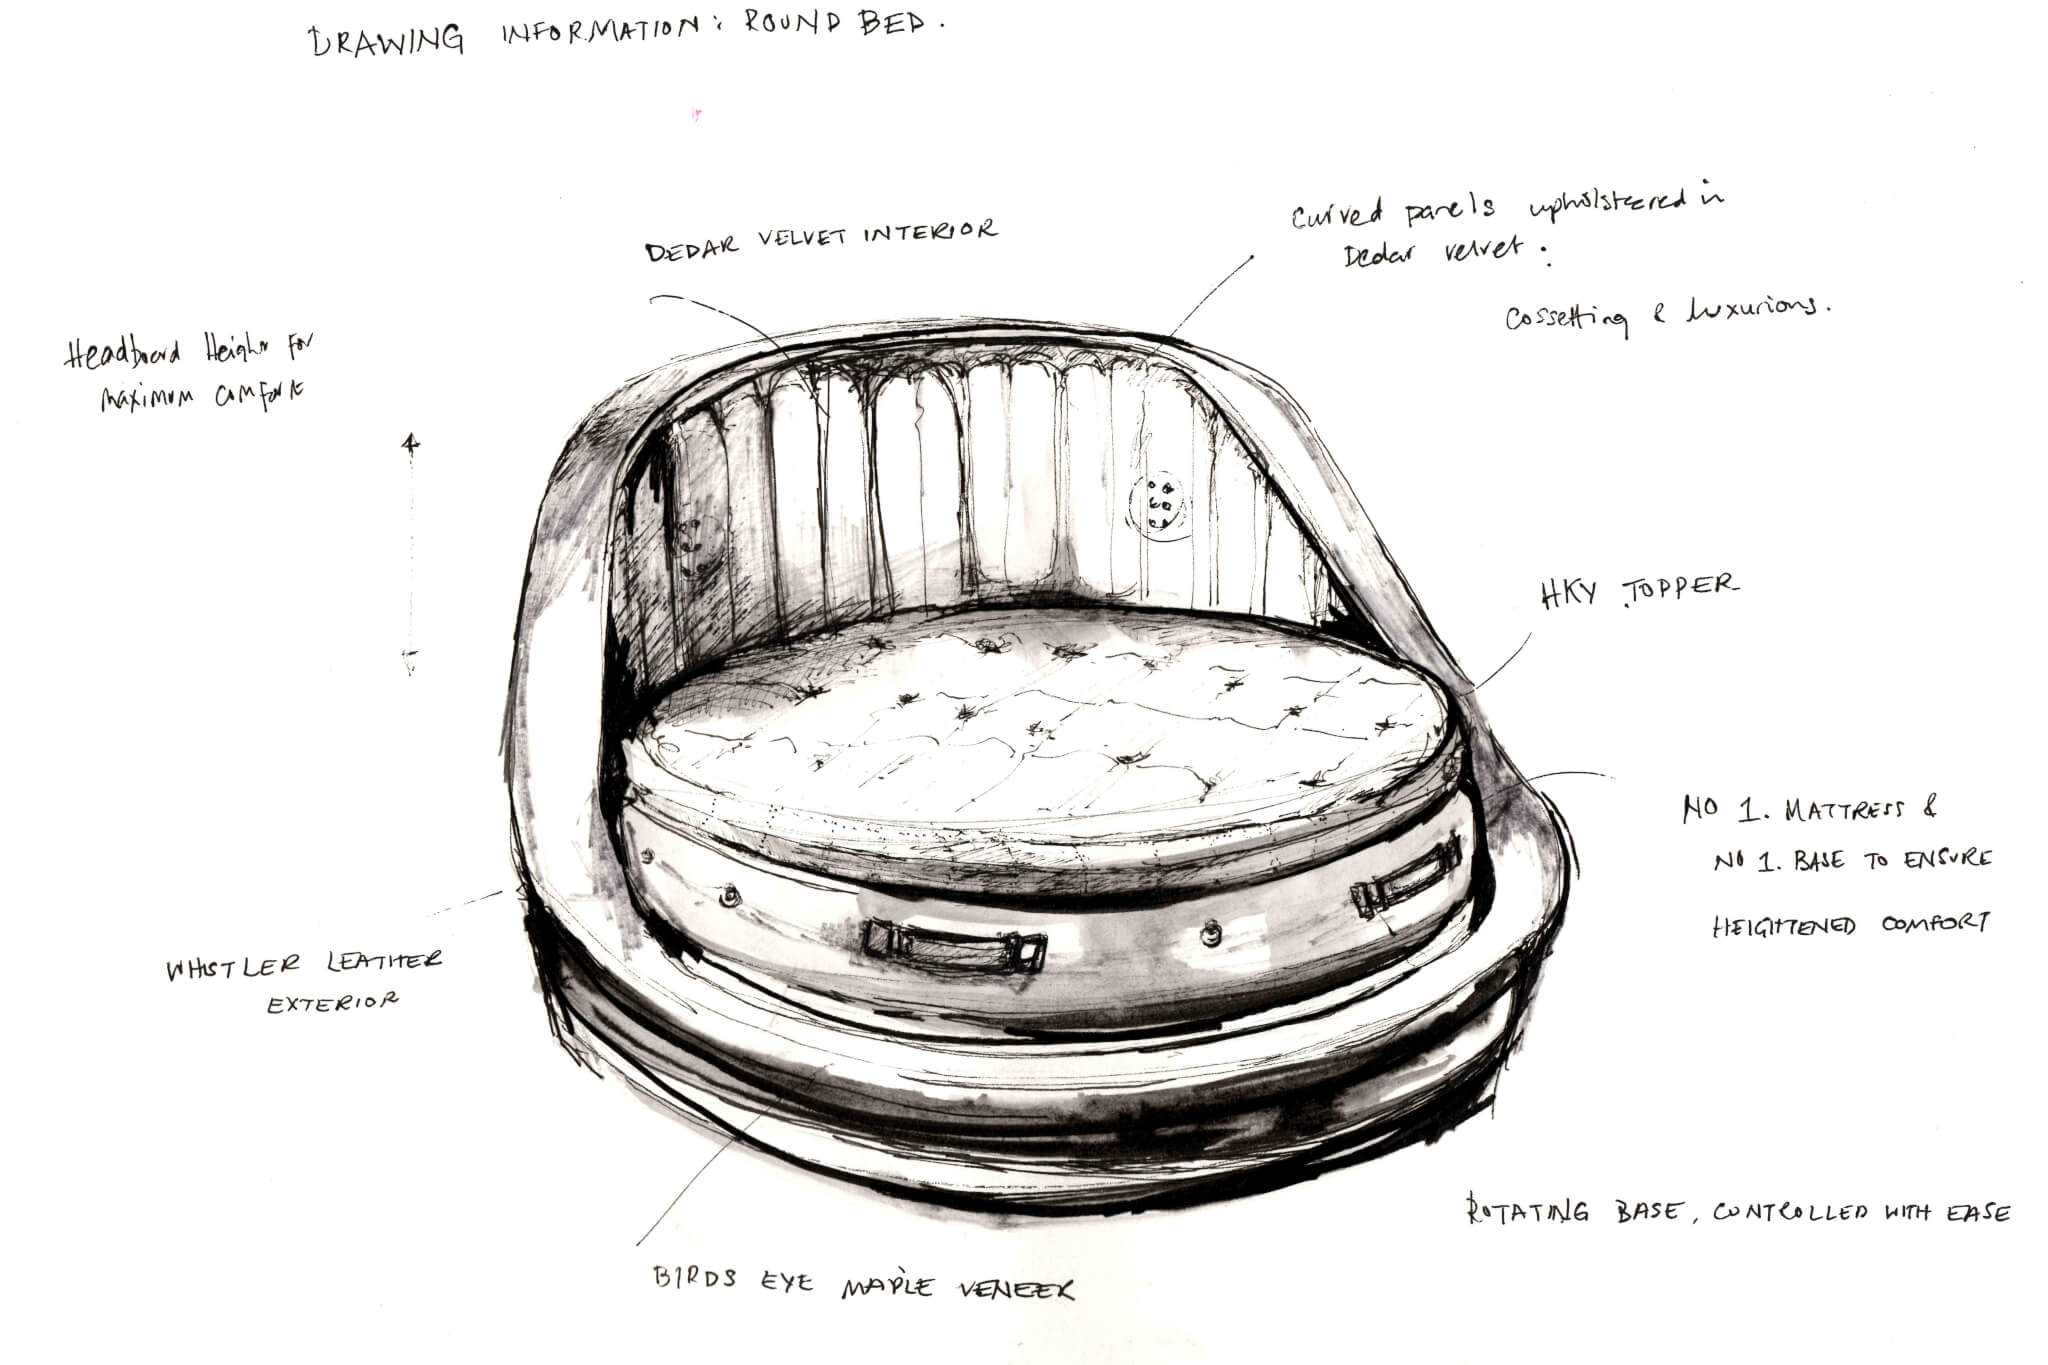 DRAWING INFORMATION: ROUND BED.
DEDAR VELVET INTERIOR
Curved panels upholstered in
Dedar velvet:
Cossetting & luxurious.
Headboard Height for
maximum comfort
HKY TOPPER
NO 1. MATTRESS &
NO 1. BASE TO ENSURE
HEIGHTENED COMFORT
WHISTLER LEATHER
EXTERIOR
ROTATING BASE, CONTROLLED WITH EASE
BIRDS EYE MAPLE VENEER